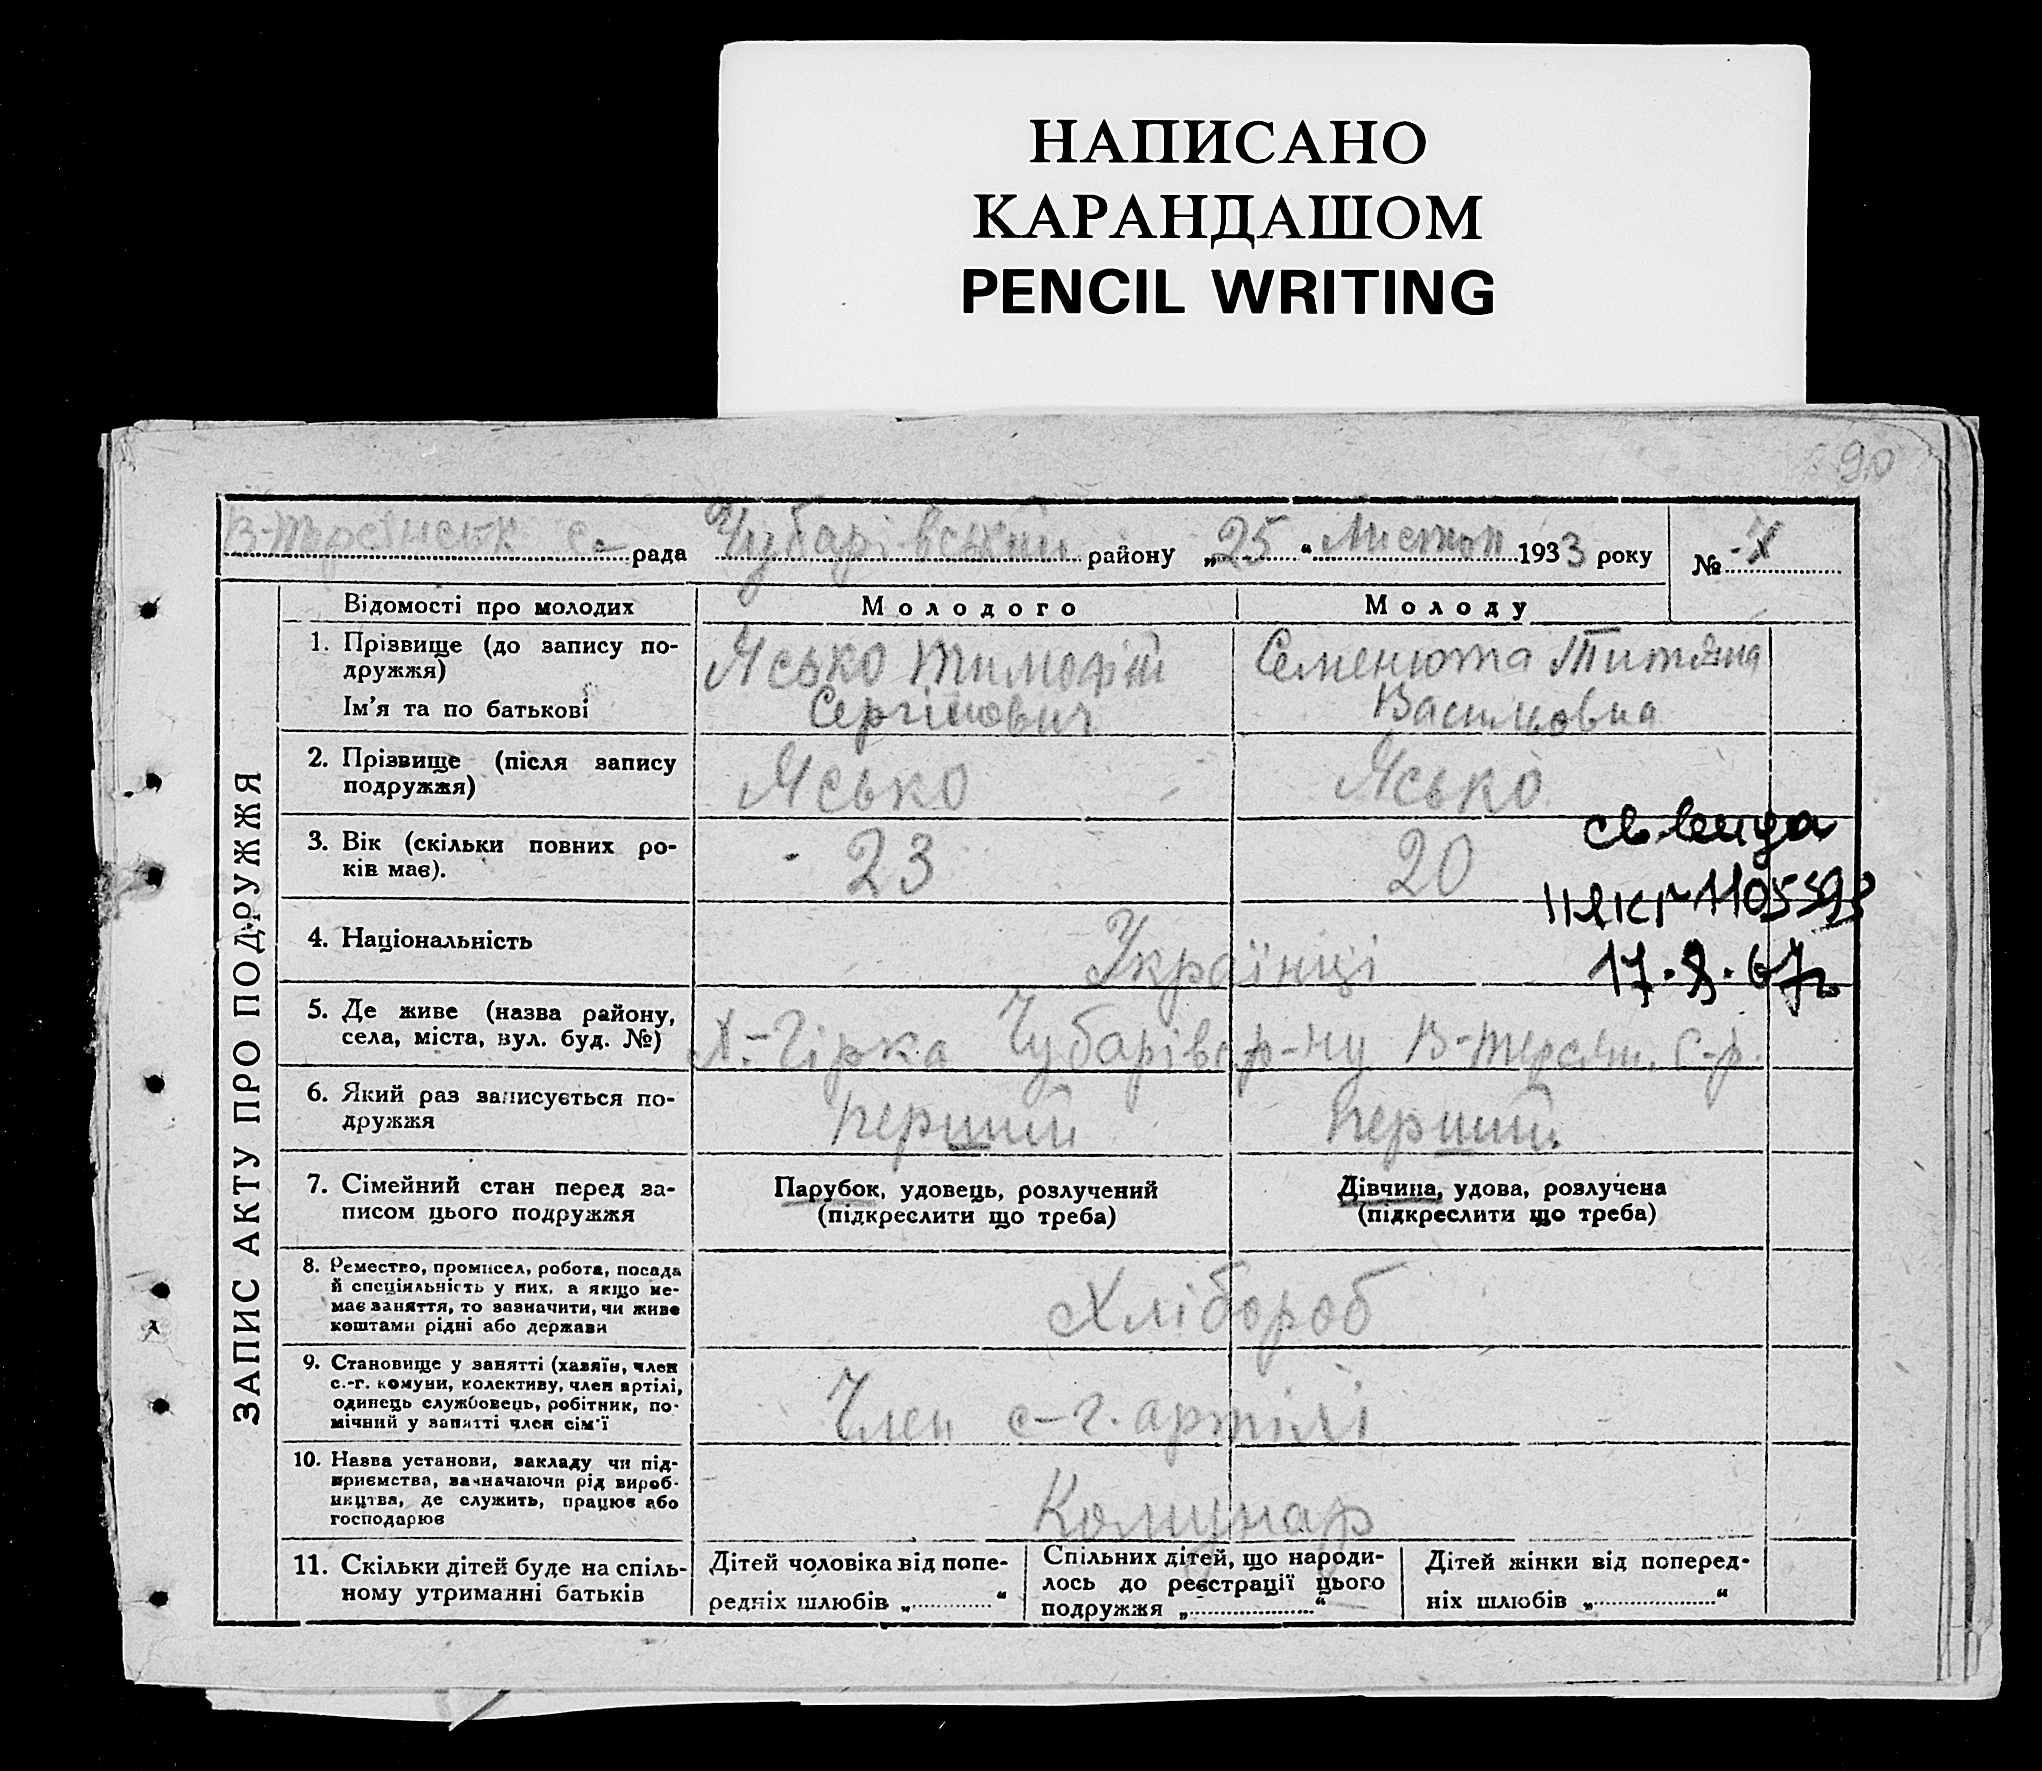 НАПИСАНО
КАРАНДАШОМ
PENCIL WRITING
90
В-Терсянськ с. рада Чубарівський району „25“ Листоп 1933 року №
ЗАПИС АКТУ ПРО ПОДРУЖЖЯ
Відомості про молодих
Молодого
Молоду
1. Прізвище (до запису по-
дружжя)
Ім'я та по батькові
Ясько Тимофій
Сергійович
Семенюта Титяна
Васильовна
2. Прізвище (після запису
подружжя)
Ясько
Ясько
3. Вік (скільки повних ро-
ків має).
23
20
4. Національність
Українці
5. Де живе (назва району,
села, міста, вул. буд. №)
Х.-Гірка Чубарівс р-ну В-Терсян. с-р.
6. Який раз записується по-
дружжя
перший
перший
7. Сімейний стан перед за-
писом цього подружжя
Парубок, удовець, розлучений
(підкреслити що треба)
Дівчина, удова, розлучена
(підкреслити що треба)
8. Ремество, промисел, робота, посада
й спеціяльність у них, а якщо не-
має заняття, то зазначити, чи живе
коштами рідні або держави
Хлібороб
9. Становище у занятті (хазяїн, член
с.-г. комуни, колективу, член артілі,
одинець службовець, робітник, по-
мічний у занятті член сім'ї
Член с-г. артілі
10. Назва установи, закладу чи під-
приємства, зазначаючи рід вироб-
ництва, де служить, працює або
господарює
Комунар
11. Скільки дітей буде на спіль-
ному утриманні батьків
Дітей чоловіка від попе-
редніх шлюбів „ “
Спільних дітей, що народи-
лось до реєстрації цього
подружжя „ “
Дітей жінки від поперед-
ніх шлюбів „ “
1105598